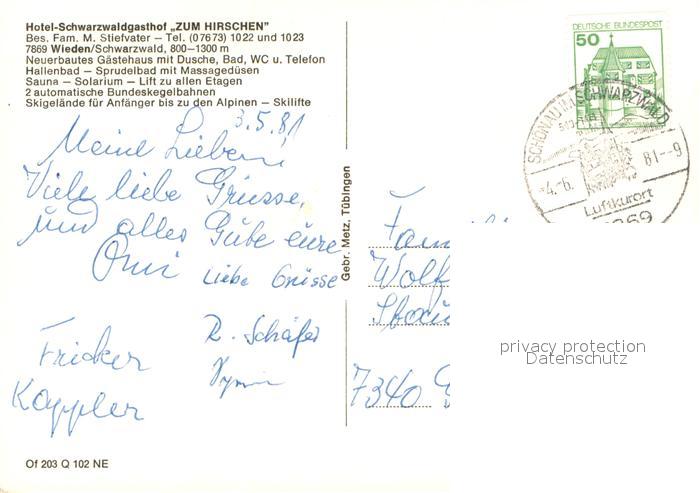 Hotel-Schwarzwaldgasthof „ZUM HIRSCHEN"
Bes. Fam. M. Stiefvater – Tel. (07673) 1022 und 1023
7869 Wieden/Schwarzwald, 800–1300 m
Neuerbautes Gästehaus mit Dusche, Bad, WC u. Telefon
Hallenbad – Sprudelbad mit Massagedüsen
Sauna – Solarium – Lift zu allen Etagen
2 automatische Bundeskegelbahnen
Skigelände für Anfänger bis zu den Alpinen – Skilifte
3.5.81
Meine Lieben!
Viele liebe Grüsse,
und alles Gute eure
Omi
Liebe Grüsse
R. Schäfer
Fricker
Kappler
Of 203 Q 102 NE
Gebr. Metz, Tübingen
DEUTSCHE BUNDESPOST
50
SCHÖNAU IM SCHWARZWALD
-4.-6. 81--9
Luftkurort
7869
Fam
Wolf
7340
privacy protection
Datenschutz